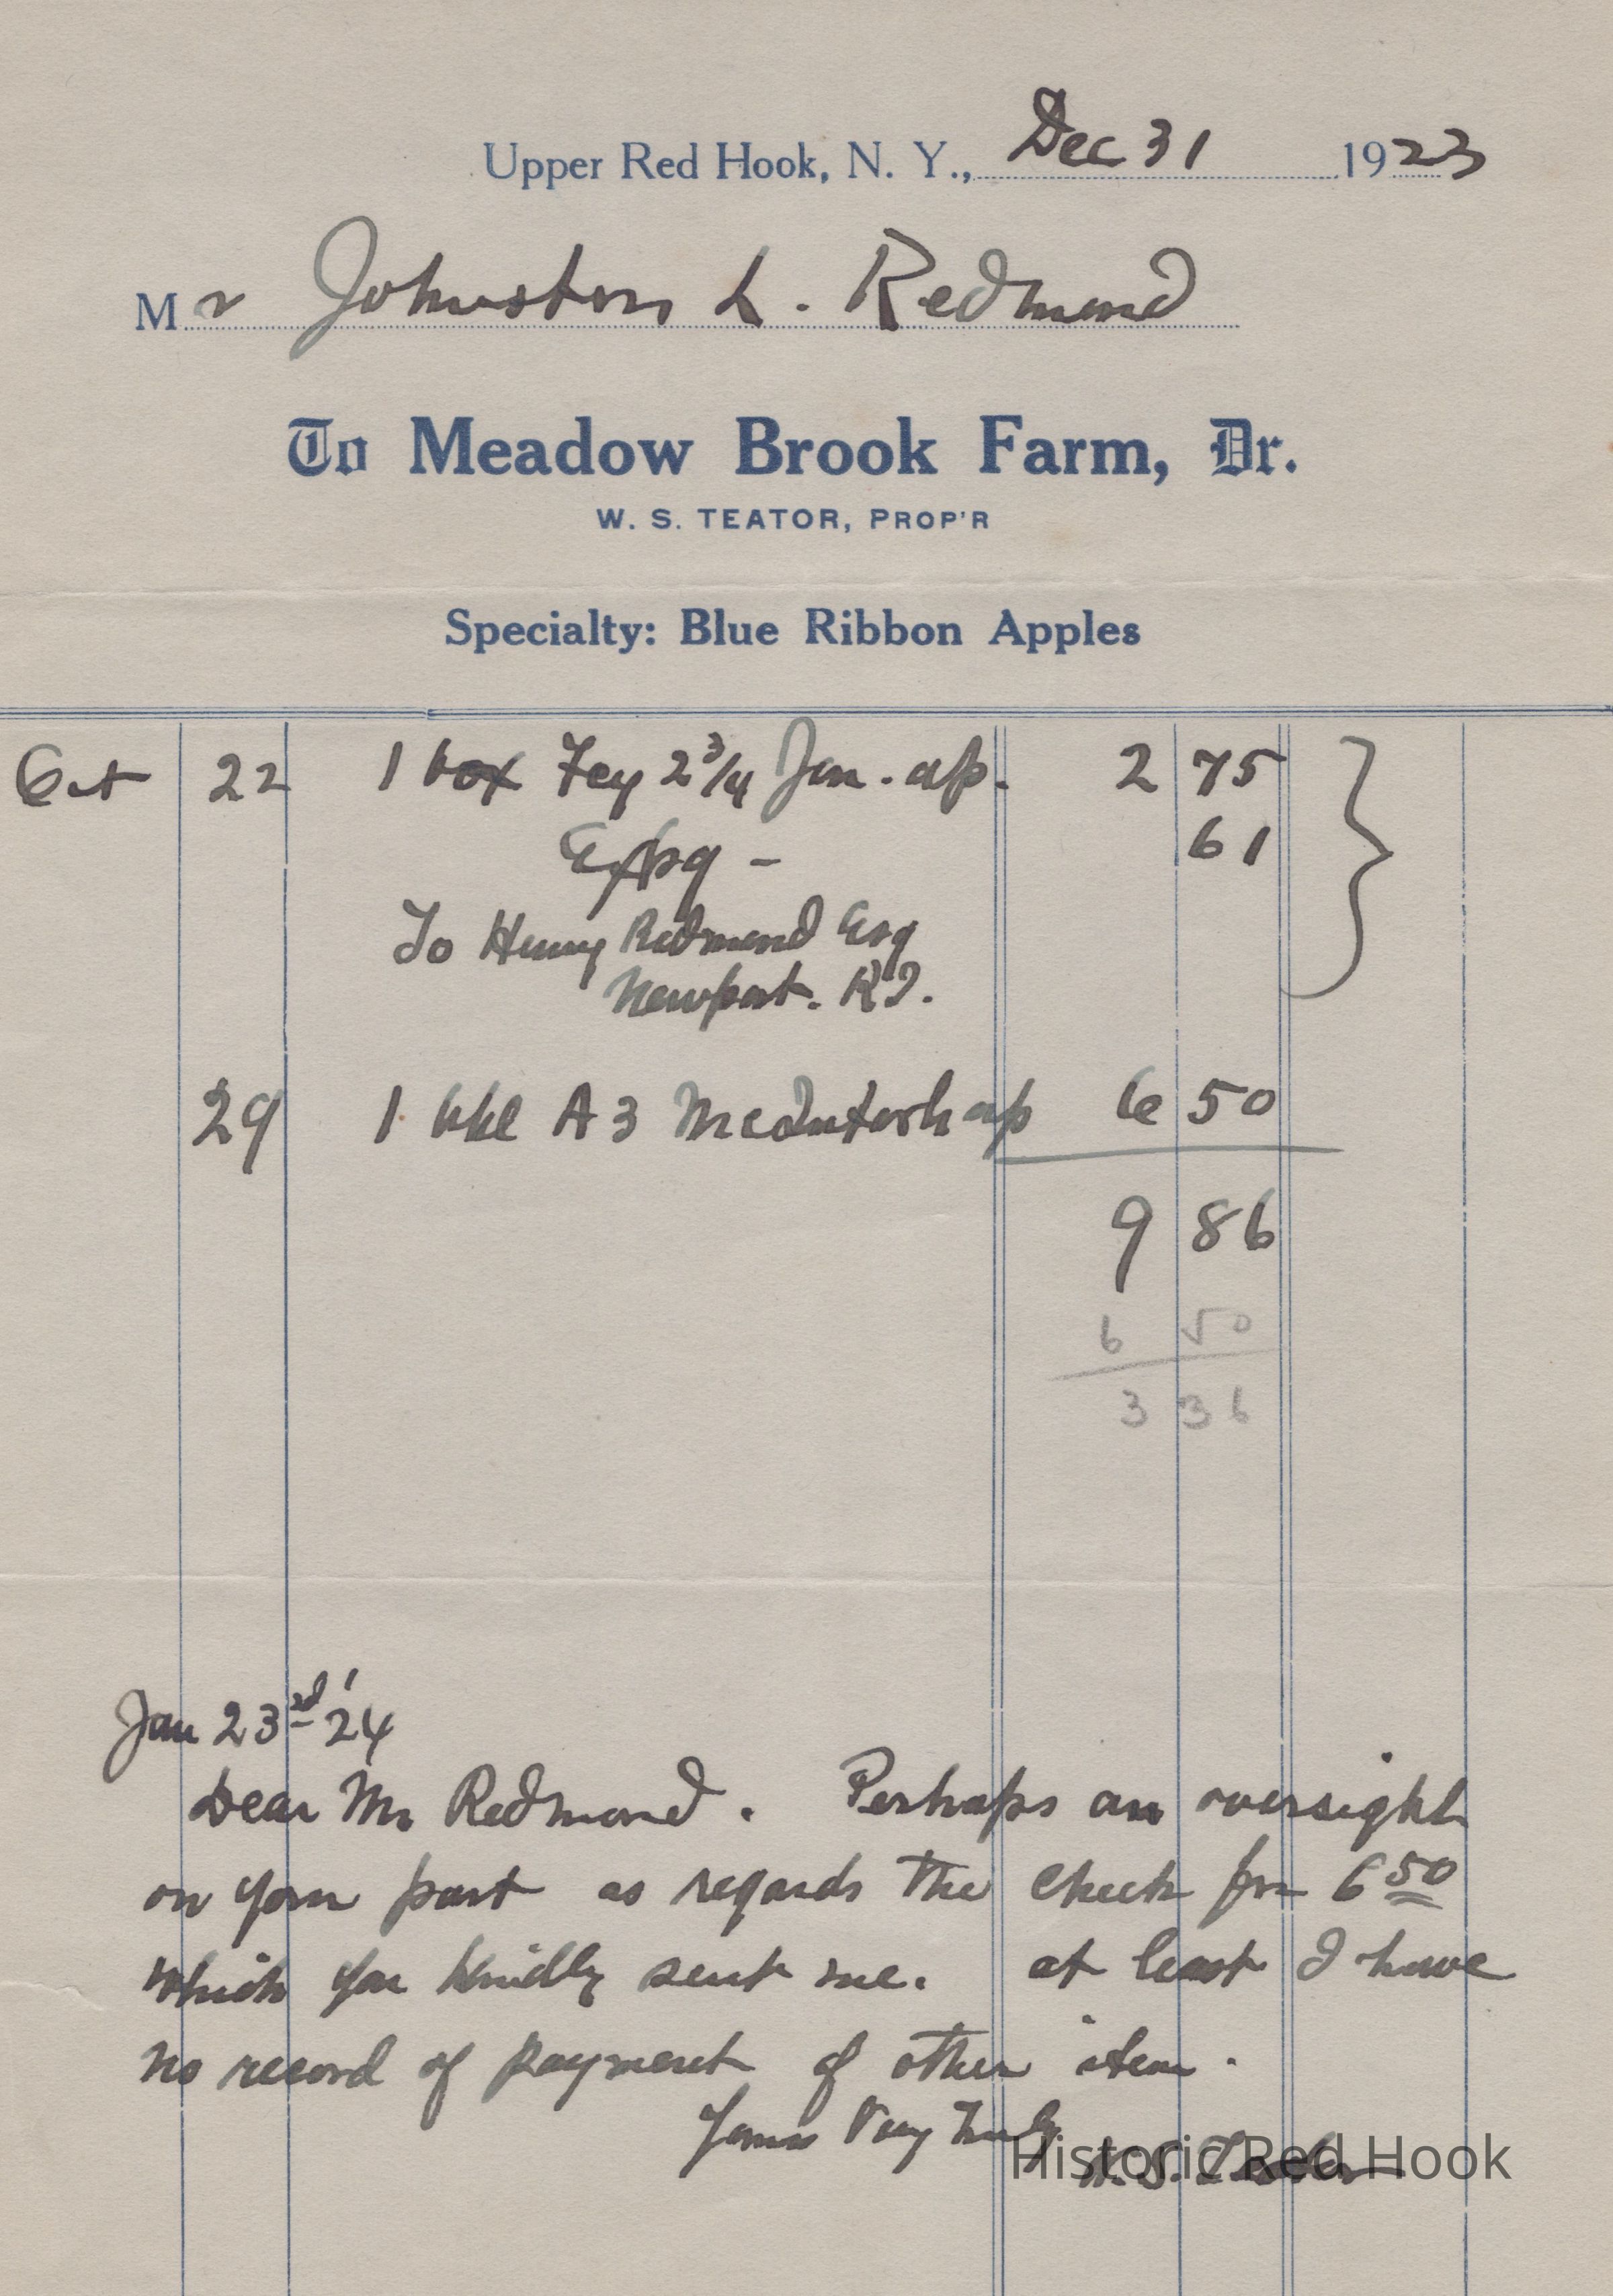 Upper Red Hook, N. Y., Dec 31 1923
Mr Johnston L. Redmond
To Meadow Brook Farm, Dr.
W. S. TEATOR, PROP'R
Specialty: Blue Ribbon Apples
Oct 22 1 box Fcy 2 3/4 Jon. ap. 2 75
Expg - 61
To Henry Redmond Esq
Newport. R.I.
29 1 bbl A 3 McIntosh ap 6 50
9 86
6 50
3 36
Jan 23rd '24
Dear Mr Redmond. Perhaps an oversight
on your part as regards the check for 6 50
which you kindly sent me. at least I have
no record of payment of other item.
Yours Very Truly
W. S. Teator
Historic Red Hook